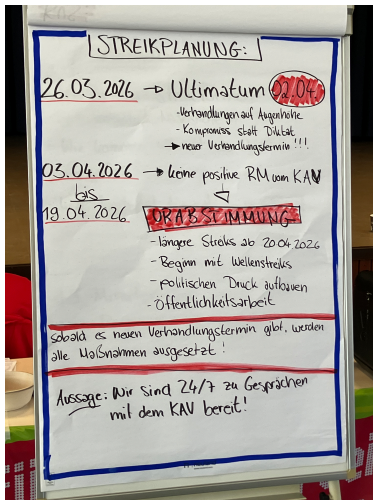 STREIKPLANUNG:
26.03.2026 → Ultimatum 02.04.
- Verhandlungen auf Augenhöhe
- Kompromiss statt Diktat
→ neuer Verhandlungstermin!!!
03.04.2026 → keine positive RM vom KAV
bis
19.04.2026 URABSTIMMUNG
- längere Streiks ab 20.04.2026
- Beginn mit Wellenstreiks
- politischen Druck aufbauen
- Öffentlichkeitsarbeit
sobald es neuen Verhandlungstermin gibt, werden
alle Maßnahmen ausgesetzt!
Aussage: Wir sind 24/7 zu Gesprächen
mit dem KAV bereit!